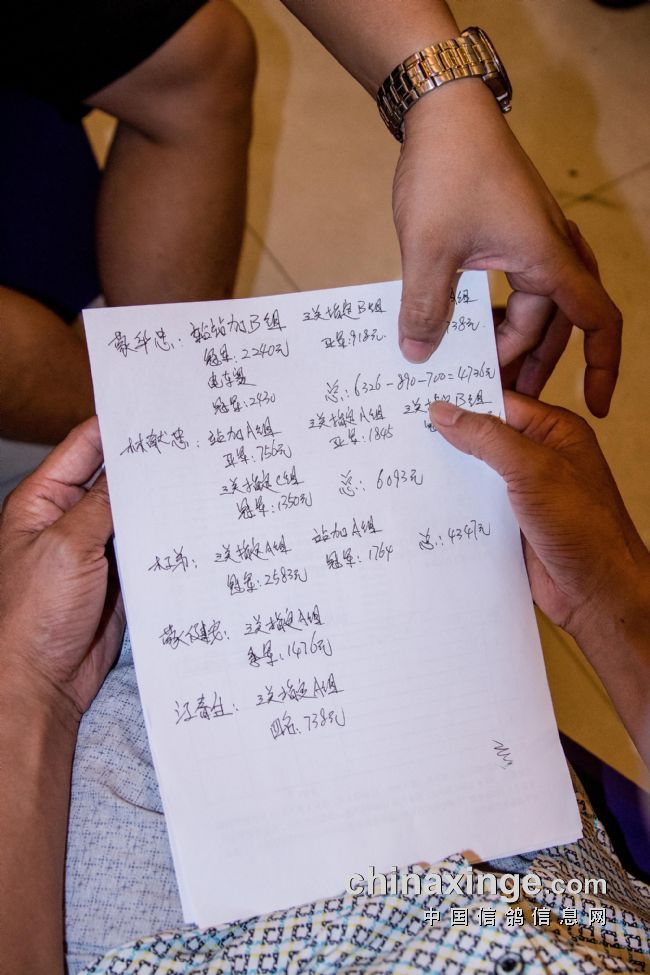 站加B组 三关指定B组 A组
冠军:2240元 亚军:918元 738元
冠军:2430 总:6326-890-700=4736元
站加A组 三关指定A组 三关指定B组
亚军:756元 亚军:1845
三关指定C组
冠军:1350元 总:6093元
三关指定A组 站加A组
冠军:2583元 冠军:1764 总:4347元
三关指定A组
季军:1476元
三关指定A组
四名:738元
chinaxinge.com
中国信鸽信息网